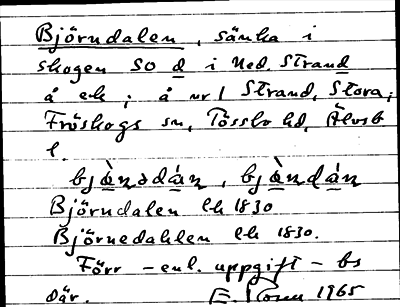 Björndalen, sänka i
skogen SO d i Ned. Strand
å ek; å nr 1 Strand, Stora,
Fröskogs sn, Tössbo hd, Älvsb
l.
bjö̀nədán, bjö̀ndán
Björndalen ek 1830
Björnedahlen ek 1830.
Förr – enl. uppgift – bs
där. 1965